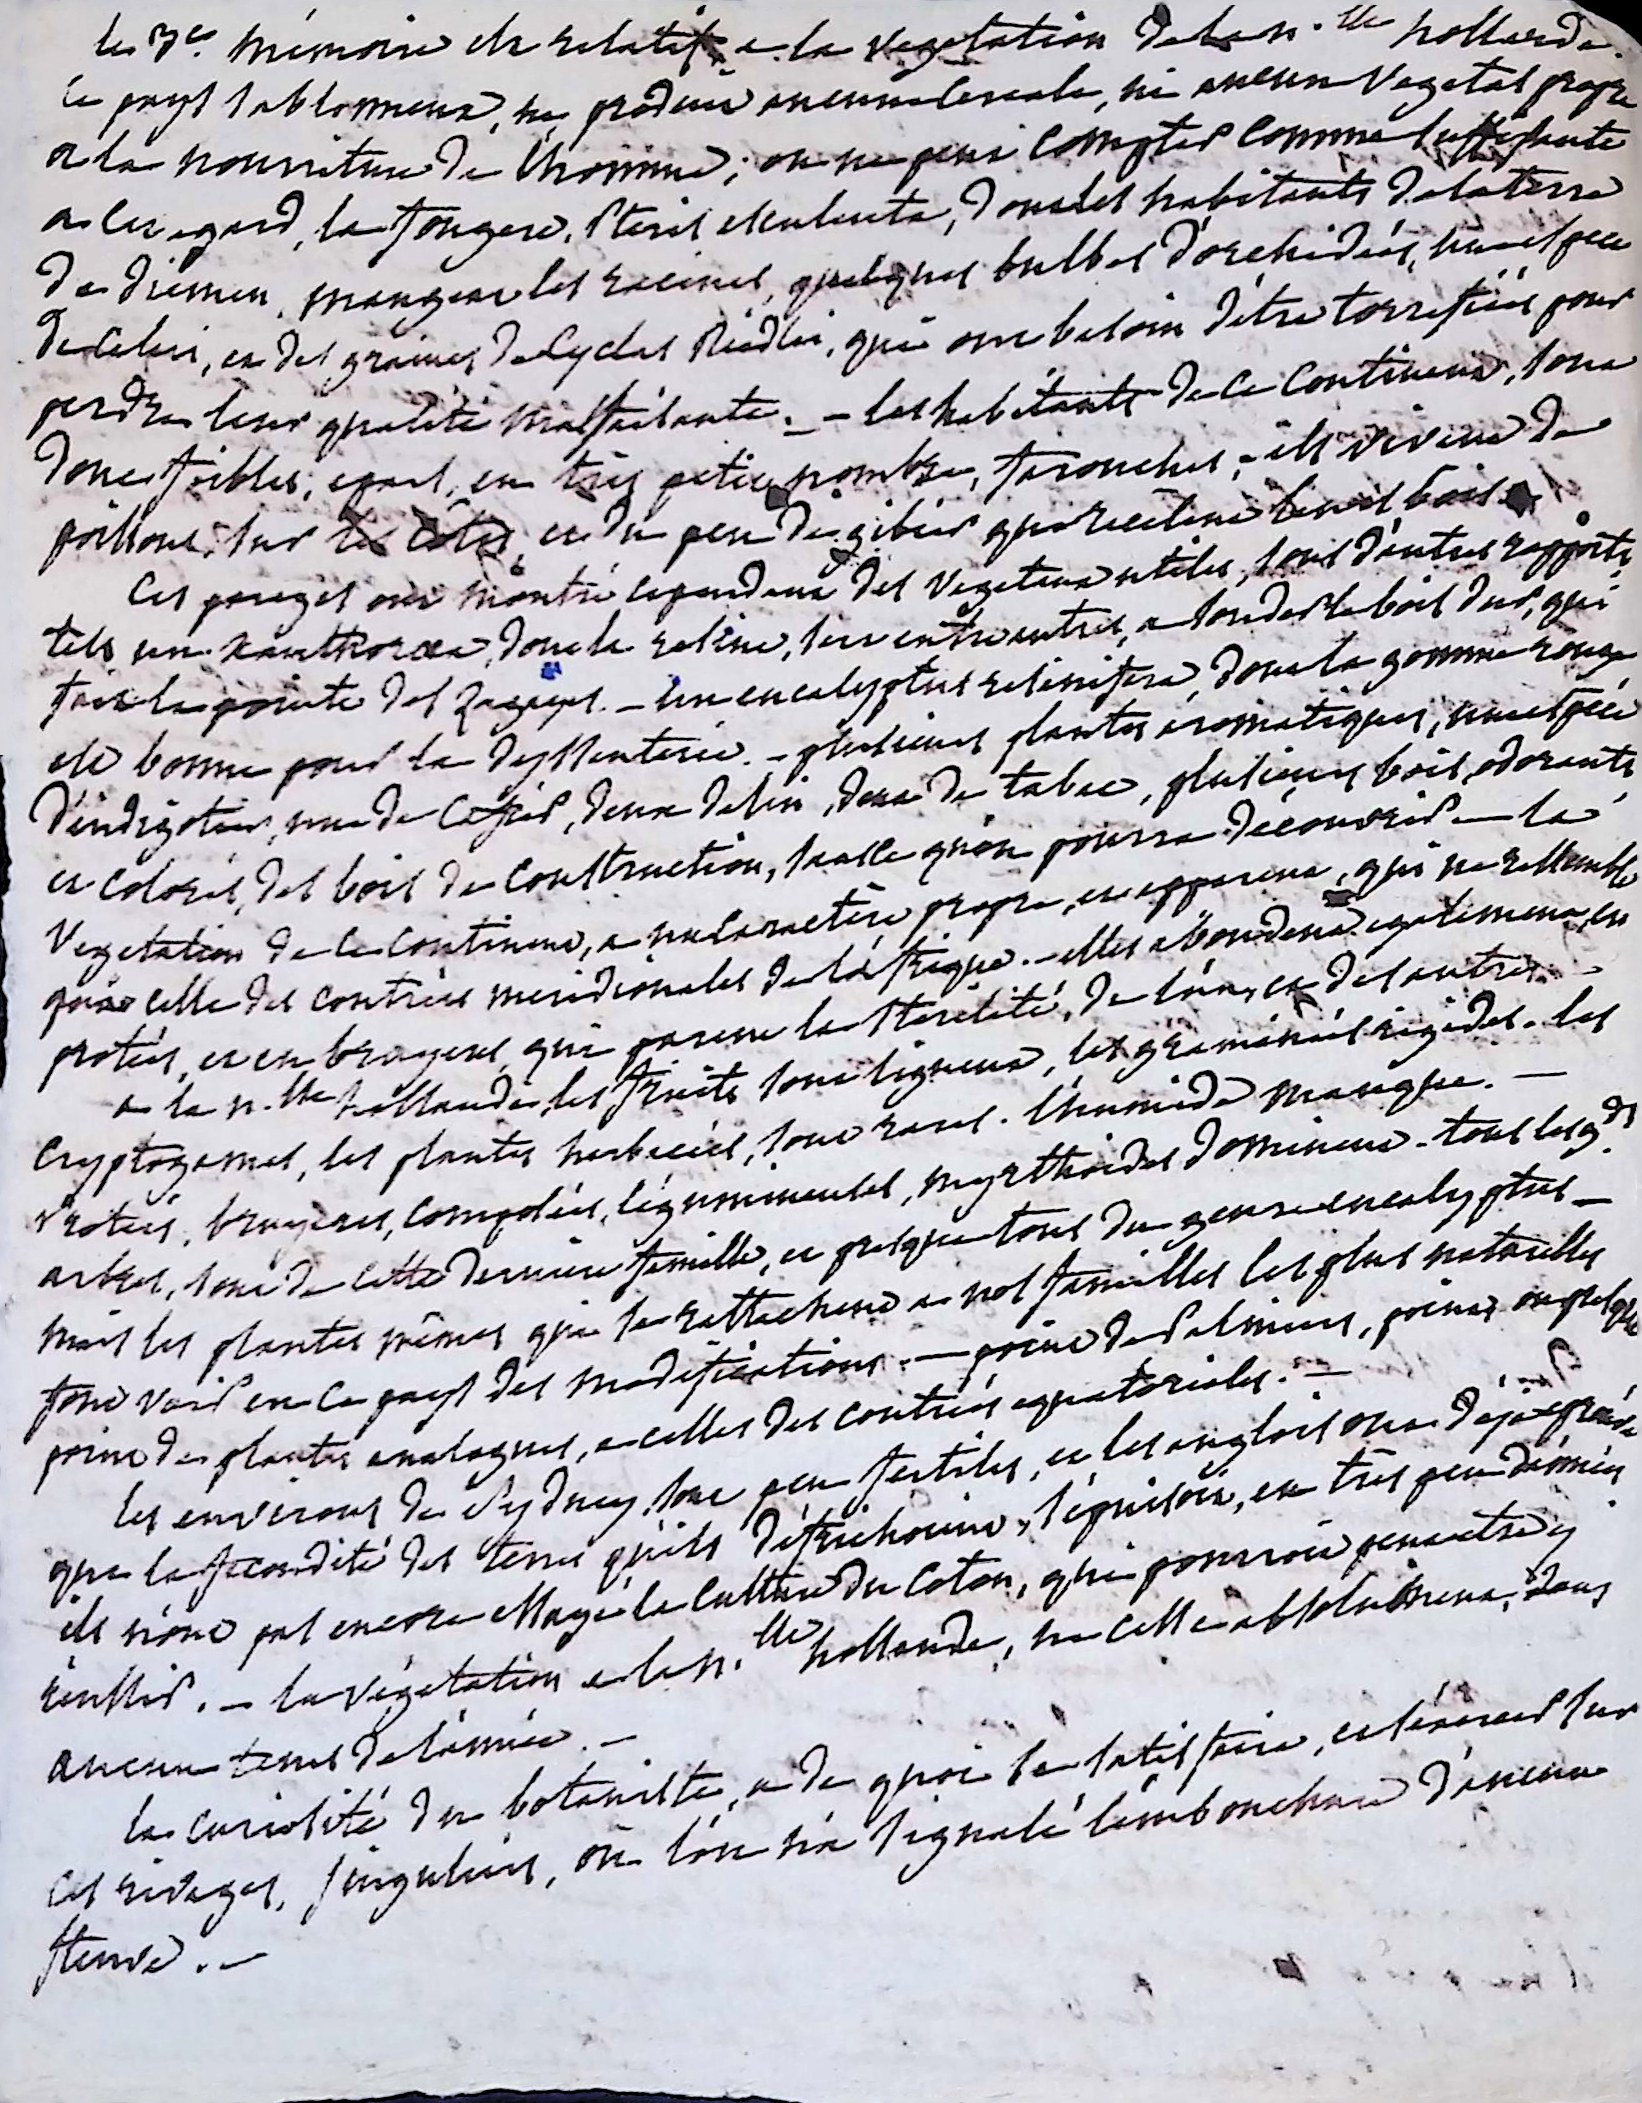 le 3e. mémoire est relatif a la vegetation de la n.lle hollande.
Ce pays sablonneux, ne produit aucune cereale, ni aucun vegetal propre
a la nourriture de l'homme; on ne peut compter comme suffisante
a cet egard, la fougere, pteris esculenta, dont les habitants de la terre
de diemen, mangent les racines, quelques bulbes d'orchidées, une espece
de celeri, et des graines de Cyclas Riedlei, qui ont besoin d'être torrefiées pour
perdre leur qualité malfaisante. – les habitants de ce continent, sont
donc foibles, epars, en très petit nombre, farouches; ils vivent de
poissons, sur les côtes, et du peu de gibier que recelent leurs bois.
Ces parages ont montré cependant des vegetaux utiles, sous d'autres rapports
tels un xanthorrea, dont la resine, sert entre autres, a souder le bois dur, qui
fait la pointe des zagayes. – un eucalyptus resinifera, dont la gomme rouge
est bonne pour la dyssenterie. – plusieurs plantes aromatiques, une espéce
d'indigotier, une de caprier, deux de lin, deux de tabac, plusieurs bois odorants
et colorés, des bois de construction, sauf ce qu'on pourra découvrir – la
vegetation de ce continent, a un caractère propre, et apparent, qui ne ressemble
qu'a celle des contrées meridionales de l'afrique. – elles abondent egalement, en
protées, et en bruyeres, qui parent la sterilité, de l'un, et des autres. –
a la n.lle hollande, les fruits sont ligneux, les graminées rigides. les
Cryptogames, les plantes herbacées, sont rares. l'humide manque. –
Protées, bruyeres, composées, légumineuses, myrthoides dominent – tous les gds.
arbres, sont de cette derniere famille, et presque tous du genre eucalyptus –
mais les plantes mêmes qui se rattachent a nos familles les plus naturelles
font voir en ce pays des modifications. – point de Palmiers, point, ou presque
point de plantes analogues, a celles des contrées equatoriales. –
les environs de Sydney, sont peu fertiles, et les anglois ont déja eprouvé
que la fecondité des terres qu'ils défrichoient, s'épuisoit, en très peu d'années
ils n'ont pas encore essayé la culture du coton, qui pourroit peut être y
réussir. – la végetation a la n.lle hollande, ne cesse absolument, dans
aucun tems de l'année. –
la curiosité du botaniste, a de quoi se satisfaire, et s'exercer sur
ces rivages, singuliers, où l'on n'a signalé l'embouchure d'aucun
fleuve. –